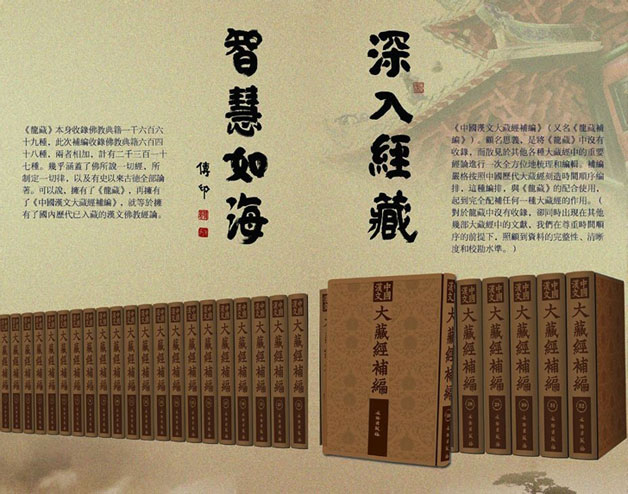 深入經藏
智慧如海
傳印
《中國漢文大藏經補編》(又名《龍藏補
編》)。顧名思義，是將《龍藏》中沒有
收錄，而散見於其他各種大藏經中的重要
經論進行一次全方位地梳理和編輯。補編
嚴格按照中國歷代大藏經刻造時間順序編
排，這種編排，與《龍藏》的配合使用，
起到完全配補任何一種大藏經的作用。(
對於龍藏中沒有收錄，卻同時出現在其他
幾部大藏經中的文獻，我們在尊重時間順
序的前提下，照顧到資料的完整性、清晰
度和校勘水準。)
《龍藏》本身收錄佛教典籍一千六百六
十九種，此次補編收錄佛教典籍六百四
十八種，兩者相加，計有二千三百一十
七種。幾乎涵蓋了佛所說一切經，所
制定一切律，以及有史以來古德全部論
著。可以說，擁有了《龍藏》，再擁有
了《中國漢文大藏經補編》，就等於擁
有了國內歷代已入藏的漢文佛教經論。
中國漢文
大藏經補編
文物出版社